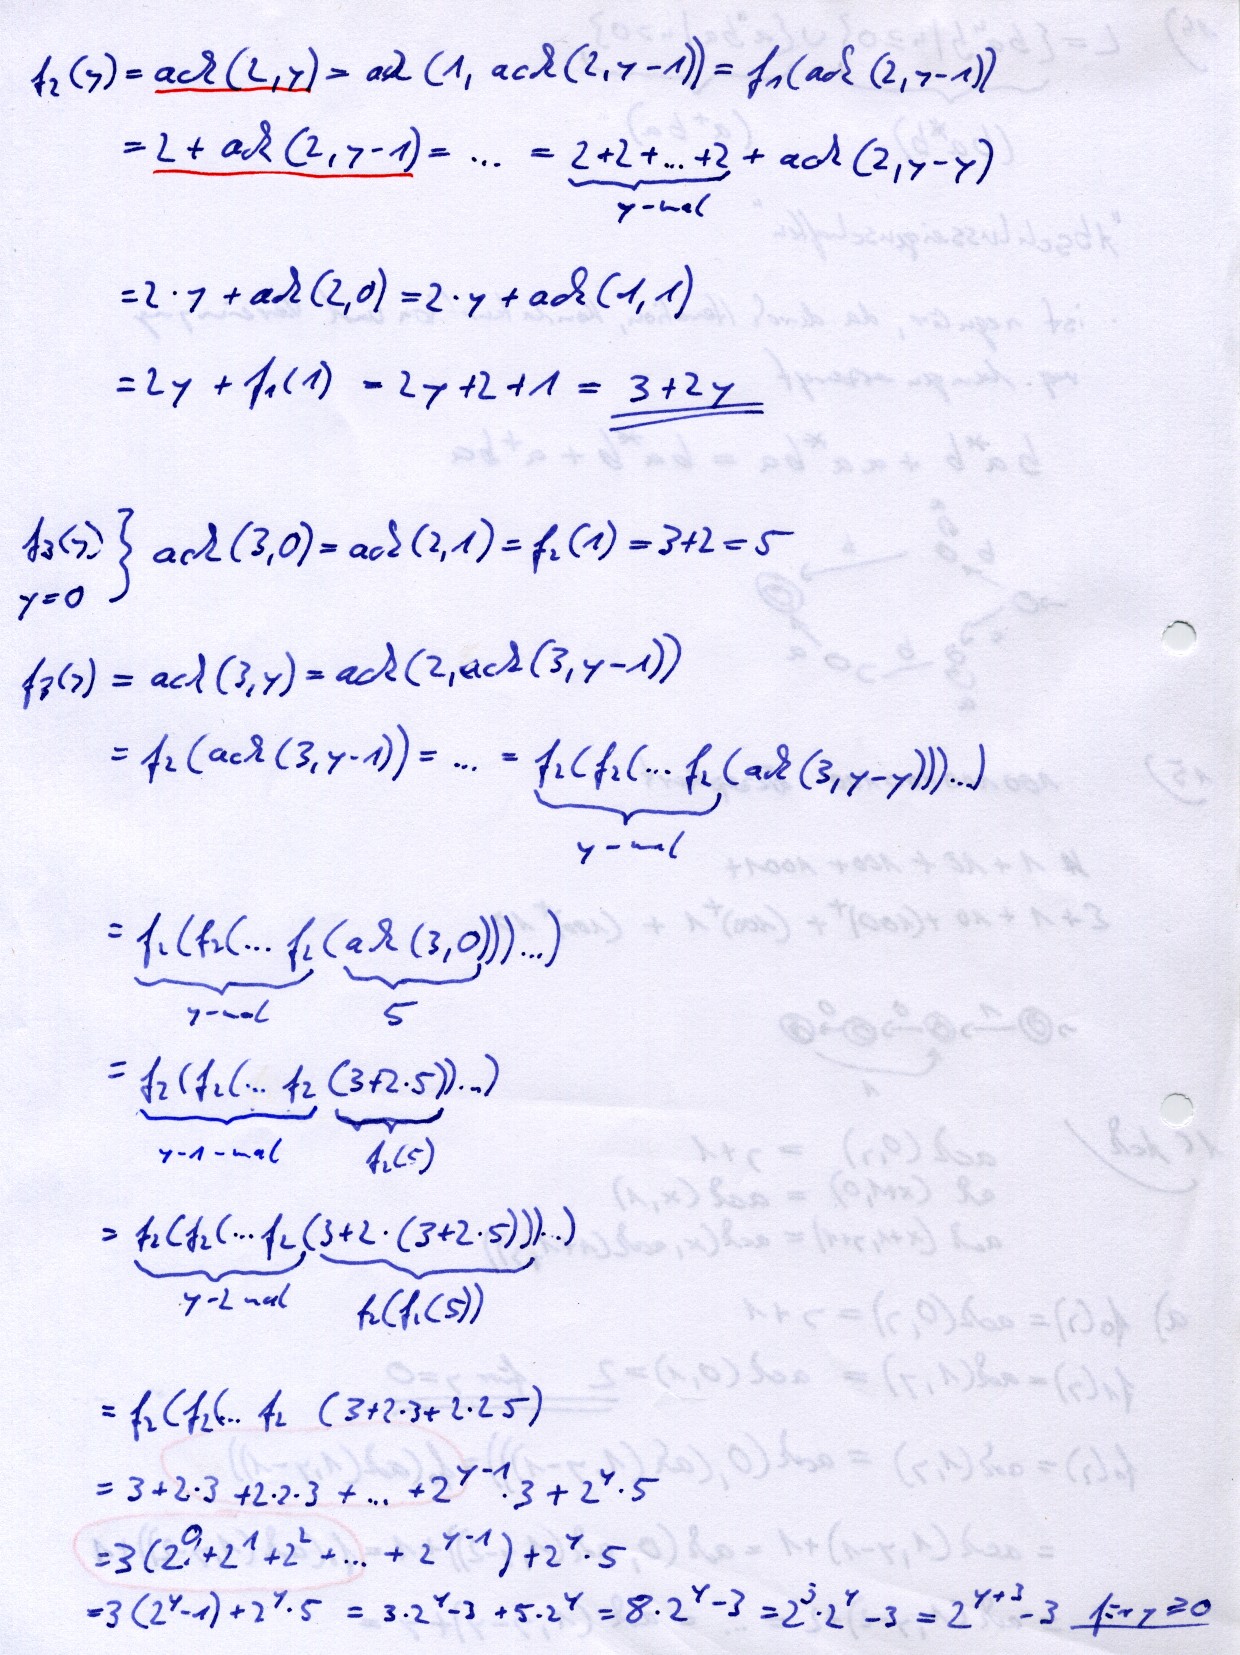 f₂(y) = ack(2,y) = ack(1, ack(2,y-1)) = f₁(ack(2,y-1))
= 2 + ack(2,y-1) = ... = 2+2+...+2 + ack(2,y-y)
y-mal
= 2·y + ack(2,0) = 2·y + ack(1,1)
= 2y + f₁(1) = 2y+2+1 = 3+2y
f₃(y) } ack(3,0) = ack(2,1) = f₂(1) = 3+2 = 5
y=0
f₃(y) = ack(3,y) = ack(2,ack(3,y-1))
= f₂(ack(3,y-1)) = ... = f₂(f₂(... f₂(ack(3,y-y)))...)
y-mal
= f₂(f₂(... f₂(ack(3,0)))...)
y-mal 5
= f₂(f₂(... f₂ (3+2·5))...)
y-1-mal f₂(5)
= f₂(f₂(... f₂(3+2·(3+2·5)))...)
y-2 mal f₂(f₂(5))
= f₂(f₂(... f₂ (3+2·3+2·2·5)
= 3+2·3+2·2·3+...+2^(y-1)·3+2^y·5
= 3(2^0+2^1+2^2+...+2^(y-1))+2^y·5
= 3(2^y-1)+2^y·5 = 3·2^y-3+5·2^y = 8·2^y-3 = 2^3·2^y-3 = 2^(y+3)-3 für y≥0